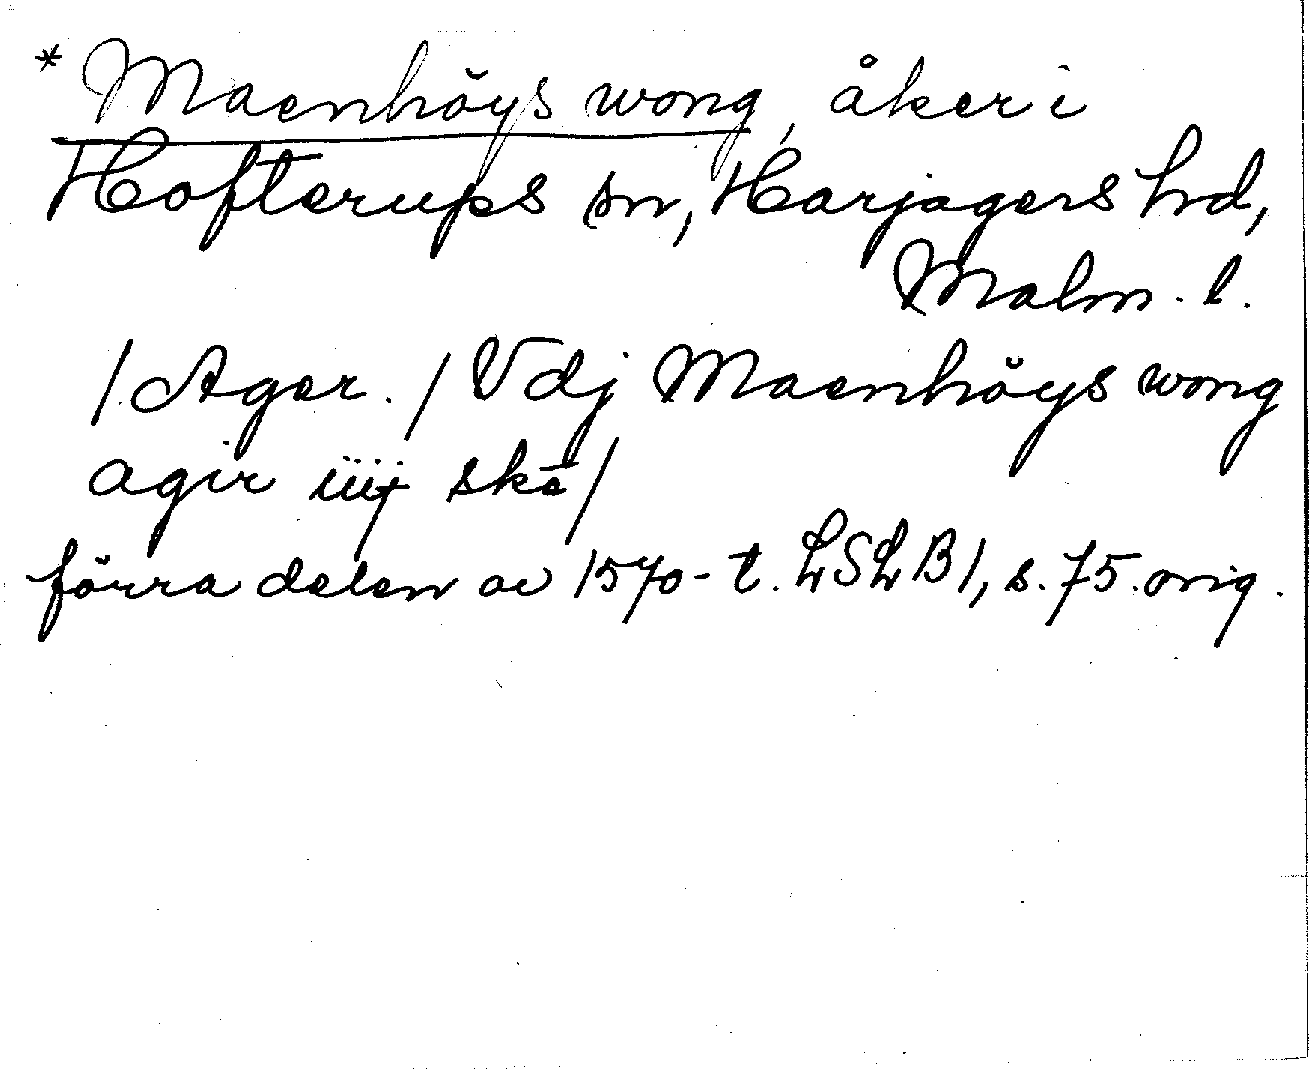 * Maenhöys wong, åker i
Hofterups sn, Harjagers hrd,
Malm. l.
/Ager./ Vdj Maenhöys wong
agir iiij ske/
förra delen av 1570-t. LSLB1, s. 75. orig.